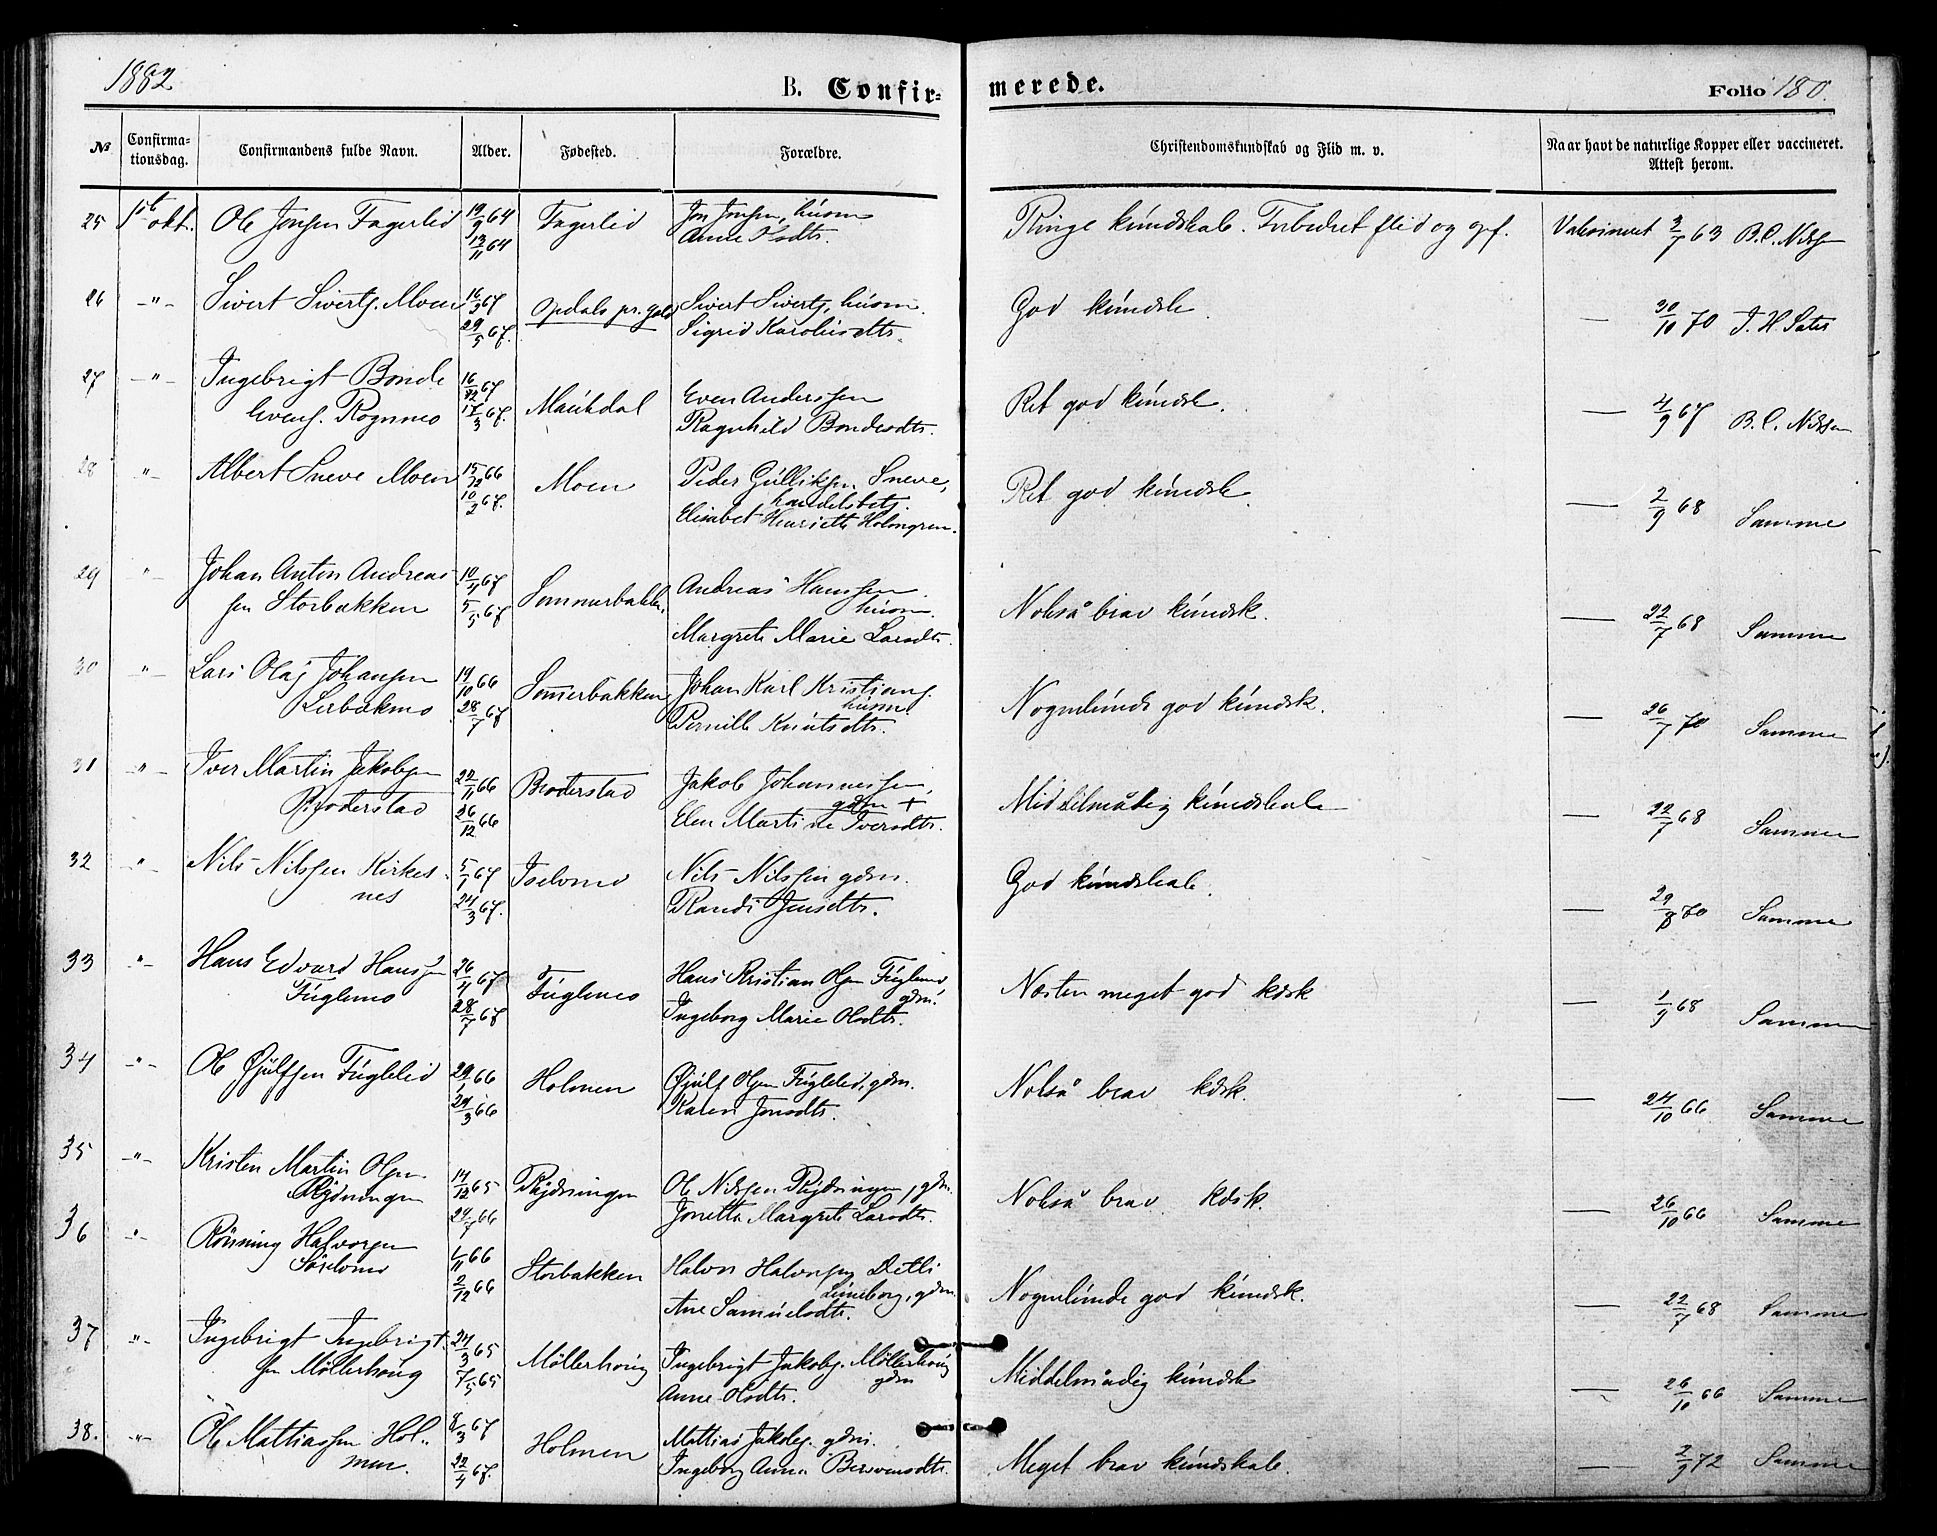 1882
B. Confir-
merede.
Folio 180.
№
Confirma-
tionsdag.
Confirmandens fulde Navn.
Alder.
Fødested.
Forældre.
Christendomskundskab og Flid m. v.
Naar havt de naturlige Kopper eller vaccineret.
Attest herom.
25 1st okt. Ole Jonsen Fagerlid 19/9 64 13/11 64 Fagerlid Jon Jonsen, husm
Anne Olsdtr.
Ringe kundskab. Forbedret flid og opf. Vaksineret 2/7 63 B. C. Nilsen
26 -"- Sivert Siverts. Moen 16/3 67 29/5 67. Opdals pr.gjeld Sivert Siverts, husm.
Sigrid Karolusdtr.
God kundsk. — 30/10 70 J. H. Sater
27 -"- Ingebrigt Bonde
Evens. Rognmo 16/12 67 17/3 67. Maukdal Even Anderssen
Ragnhild Bondesdtr.
Ret god kundsk. — 4/9 67 B. C. Nilsen
28 " Albert Sneve Moen 15/12 66 10/2 67. Moen Peder Gulliksen Sneve,
handelsbetj.
Elisabet Henriette Holmgren.
Ret god kundsk. — 2/9 68 Samme
29 " Johan Anton Andreas-
sen Storbakken 10/4 67 5/5 67 Sommerbakken Andreas Hanssen
husm.
Margrete Marie Larsdtr.
Nokså brav kundsk. — 22/7 68 Samme
30 " Lars Olaj Johansen
Lerbækmo 19/10 66 28/7 67 Somerbakken Johan Karl Kristians.
husm
Pernille Knutsdtr.
Nogenlunde god kundsk. — 26/7 70 Samme
31 -"- Iver Martin Jakobsen
Broderstad 22/11 66 26/12 66 Broderstad Jakob Johannessen,
gdm +
Elen Martine Iversdtr.
Middelmådig kundskab — 22/7 68 Samme
32 -"- Nils Nilssen Kirkes-
nes 5/1 67 24/3 67. Iselvmo Nils Nilssen gdm.
Randi Jensdtr.
God kundskab. — 29/8 70 Samme
33 -"- Hans Edvard Hanssen
Fuglemo 26/4 67 28/7 67 Fuglemo Hans Kristian Olsen Fuglemo,
gdm.
Ingeborg Marie Olsdtr.
Næsten meget god kdsk — 1/9 68 Samme
34 -"- Ole Øjulfsen Fuglelid 29/1 66 29/3 66 Holmen Øjulf Olsen Fuglelid, gdm.
Karen Jonsdtr.
Nokså brav kdsk. — 24/10 66 Samme
35 -"- Kristen Martin Olsen
Rydningen 14/12 65 24/7 66 Rydningen Ole Nilssen Rydningen, gdm.
Jonetta Margrete Larsdtr.
Nokså brav Kdsk. — 26/10 66 Samme
36 -"- Rønning Halvorsen
Iselvmo 6/11 66 2/12 66 Storbakken Halvor Halvorsen Detli
Luneborg, gdm.
Ane Samuelsdtr.
Nogenlunde god kundsk. — 22/7 68 Samme
37 -"- Ingebrigt Ingebrigt-
sen Møllerhoug 24/3 65 7/5 65 Møllerhoug Ingebrigt Jakobs. Møllerhoug
gdm
Anne Olsdtr.
Middelmådig kundsk — 26/10 66 Samme
38. -"- Ole Mattiassen Hol-
men. 8/3 67 22/4 67. Holmen Mattias Jakobs. gdm.
Ingeborg Anna Bersvensdtr.
Meget brav kundskab. — 2/9 72 Samme